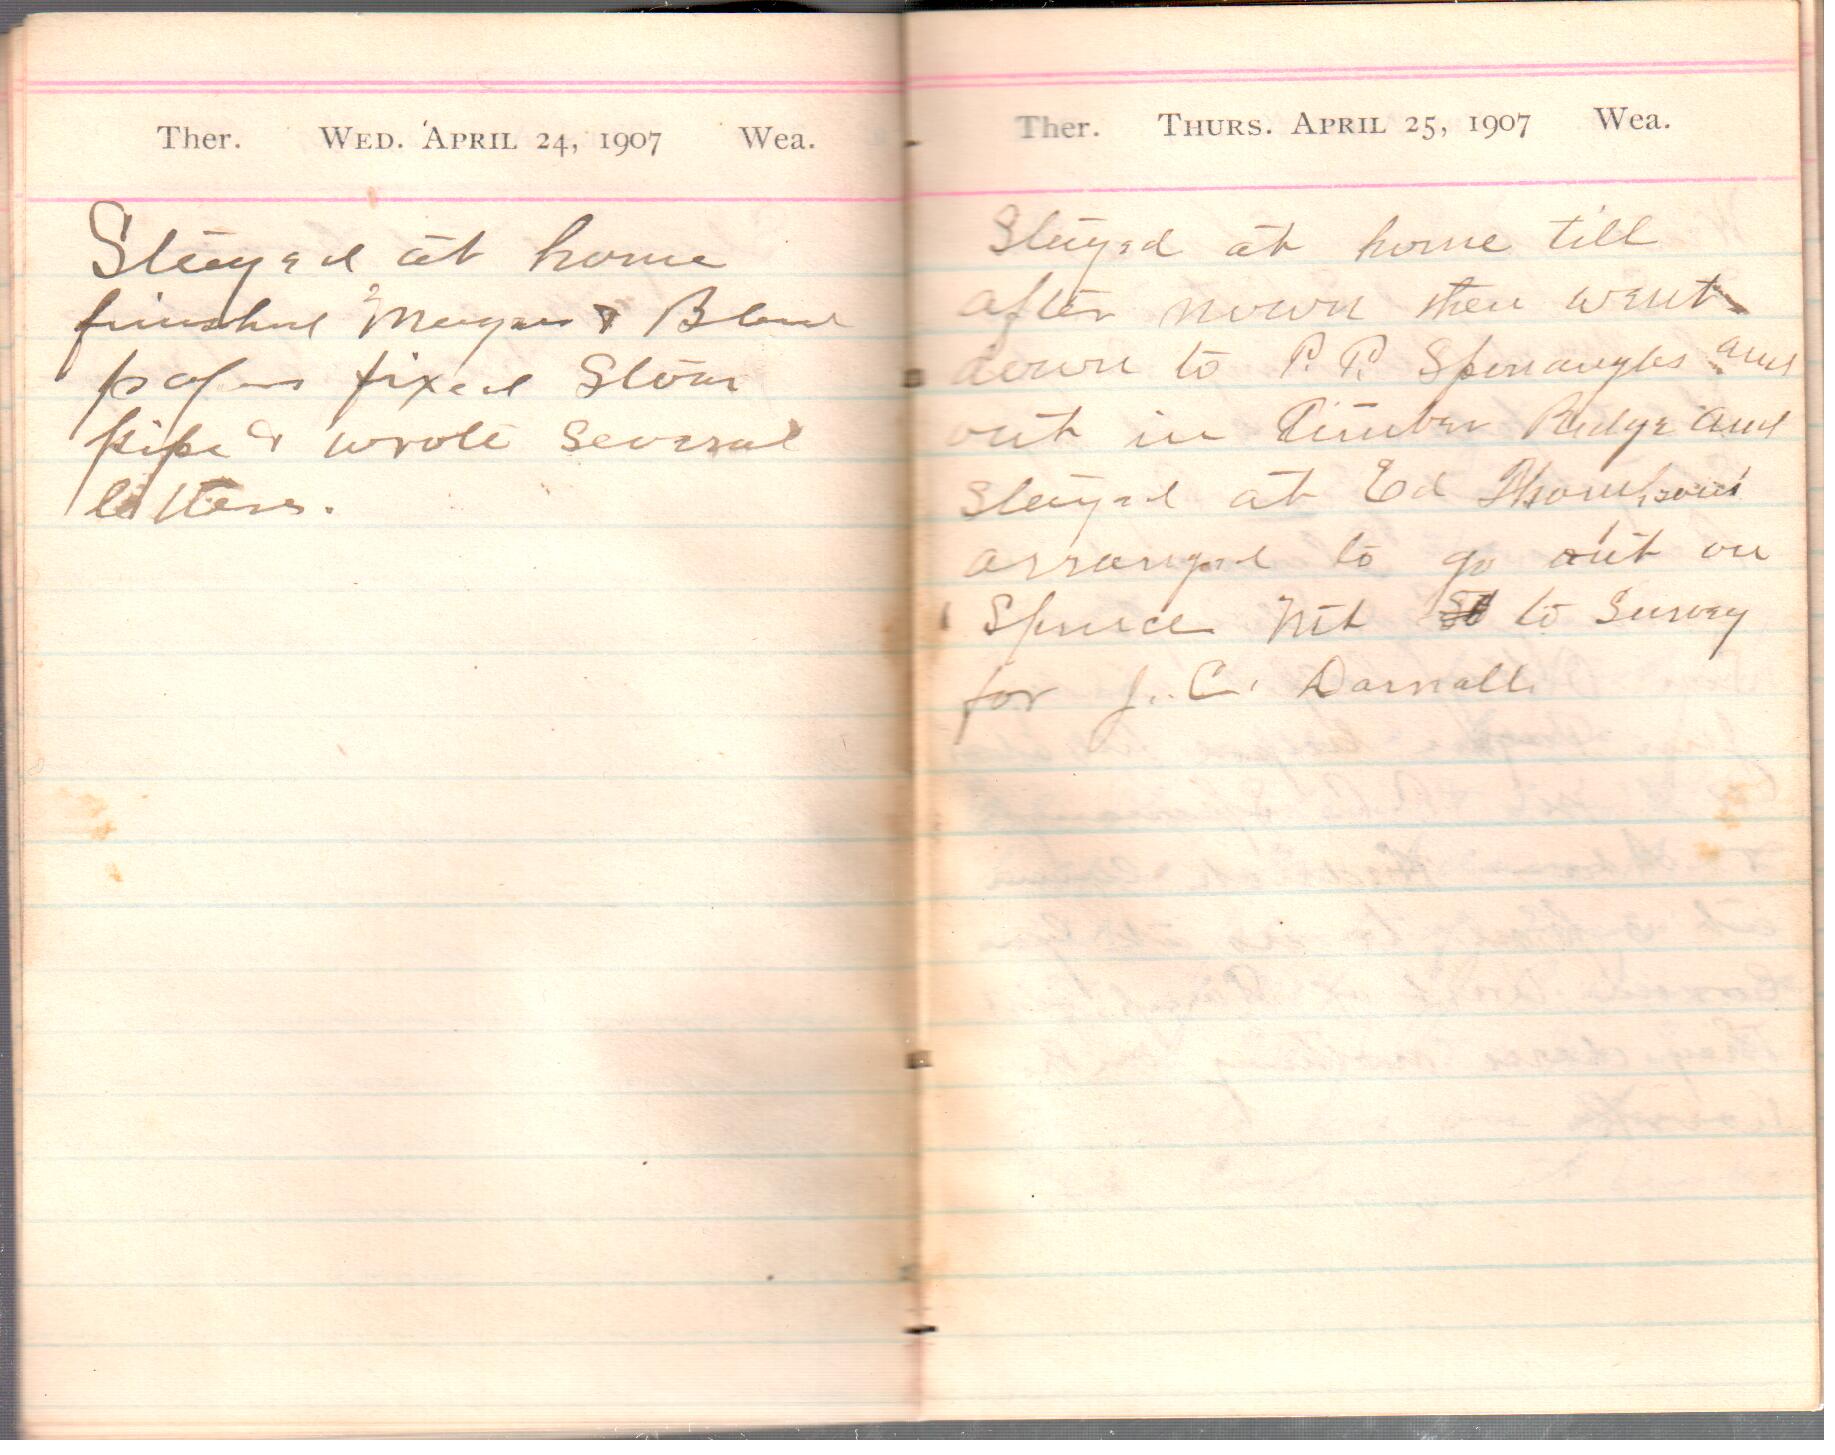 Ther. WED. APRIL 24, 1907 Wea.
Stayed at home
finished Morgan & Bland
papers fixed Stove
pipe & wrote several
letters.
Ther. THURS. APRIL 25, 1907 Wea.
Stayed at home till
after nown then went
down to P. P. Sponaugles and
out in Timber Ridge and
stayed at Ed Thompson's
arranged to go out on
Spruce Mt to Survey
for J. C. Darnall.